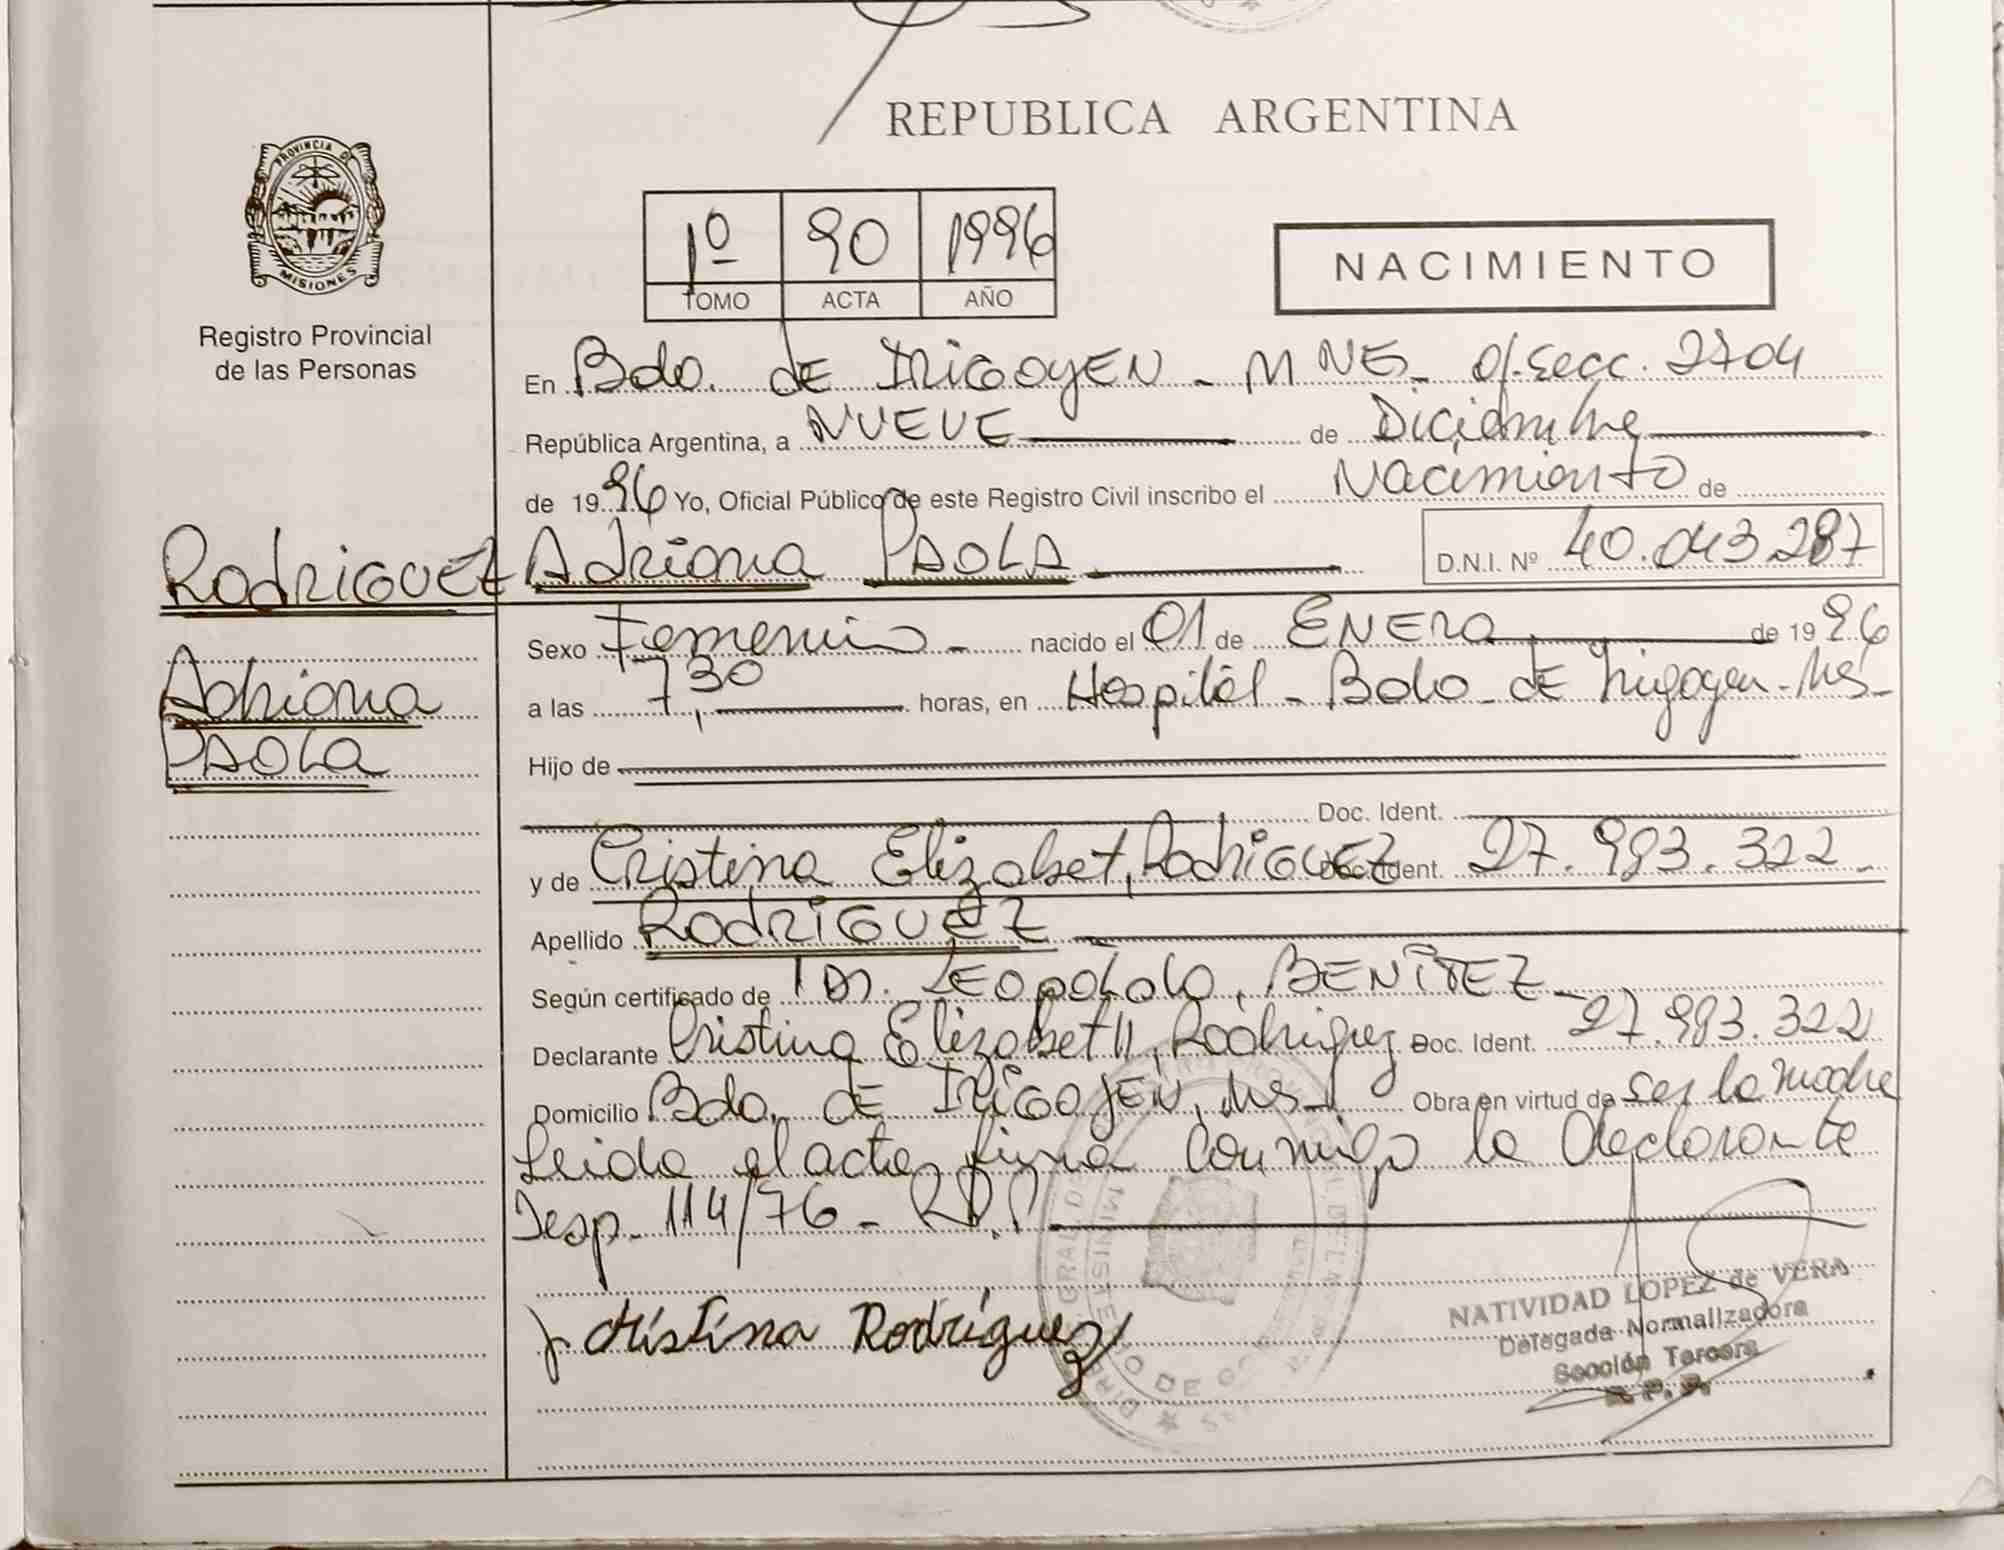 REPUBLICA ARGENTINA
PROVINCIA DE
MISIONES
Registro Provincial
de las Personas
1º 90 1996
TOMO ACTA AÑO
NACIMIENTO
En Bdo. de IRIGOYEN - MNES - of. secc. 2704
República Argentina, a NUEVE de Diciembre
de 1996 Yo, Oficial Público de este Registro Civil inscribo el Nacimiento de
RODRIGUEZ Adriana PAOLA D.N.I. Nº 40.043.287
Adriana
PAOLA
Sexo Femenino - nacido el 01 de ENERO de 1996
a las 7,30 horas, en Hospital - Bdo - de Irigoyen - Ms -
Hijo de
Doc. Ident.
y de Cristina Elizabet, RodRiGUEZ Doc. Ident. 27.993.322 -
Apellido RODRIGUEZ
Según certificado de Dr. LEOPOLDO, BENITEZ -
Declarante Cristina Elizabet, Rodriguez Doc. Ident. 27.993.322
Domicilio Bdo. de IRIGOYEN, Ms - Obra en virtud de ser la madre
Leida el acta, firma conmigo la declarante
Desp. 114/76 - RDP
Cristina Rodriguez
NATIVIDAD LOPEZ de VERA
Delegada Normalizadora
Sección Tercera
R. P. P.